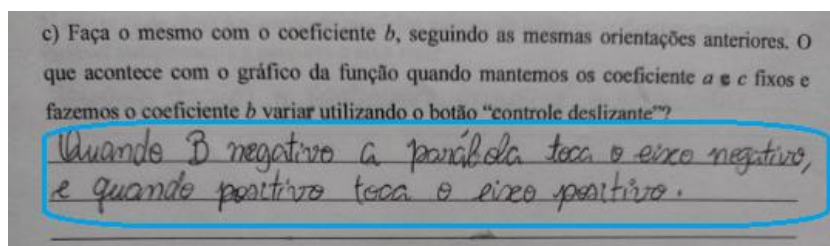 c) Faça o mesmo com o coeficiente b, seguindo as mesmas orientações anteriores. O
que acontece com o gráfico da função quando mantemos os coeficiente a e c fixos e
fazemos o coeficiente b variar utilizando o botão “controle deslizante”?
Quando B negativo a parábola toca o eixo negativo,
e quando positivo toca o eixo positivo.